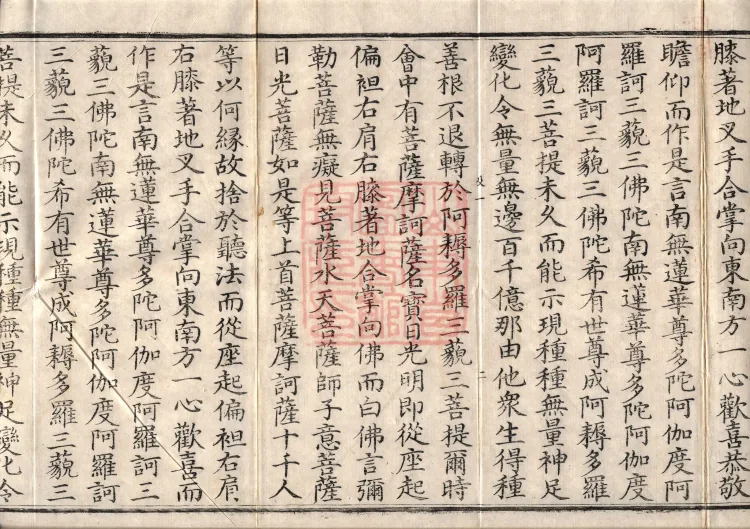 膝著地叉手合掌向東南方一心歡喜恭敬
瞻仰而作是言南無蓮華尊多陀阿伽度阿
羅訶三藐三佛陀南無蓮華尊多陀阿伽度
阿羅訶三藐三佛陀希有世尊成阿耨多羅
三藐三菩提未久而能示現種種無量神足
變化令無量無邊百千億那由他衆生得種
善根不退轉於阿耨多羅三藐三菩提爾時
會中有菩薩摩訶薩名寶日光明即從座起
偏袒右肩右膝著地合掌向佛而白佛言彌
勒菩薩無癡見菩薩水天菩薩師子意菩薩
日光菩薩如是等上首菩薩摩訶薩十千人
等以何緣故捨於聽法而從座起偏袒右肩
右膝著地叉手合掌向東南方一心歡喜而
作是言南無蓮華尊多陀阿伽度阿羅訶三
藐三佛陀南無蓮華尊多陀阿伽度阿羅訶
三藐三佛陀希有世尊成阿耨多羅三藐三
菩提未久而能示現種種無量神足變化令